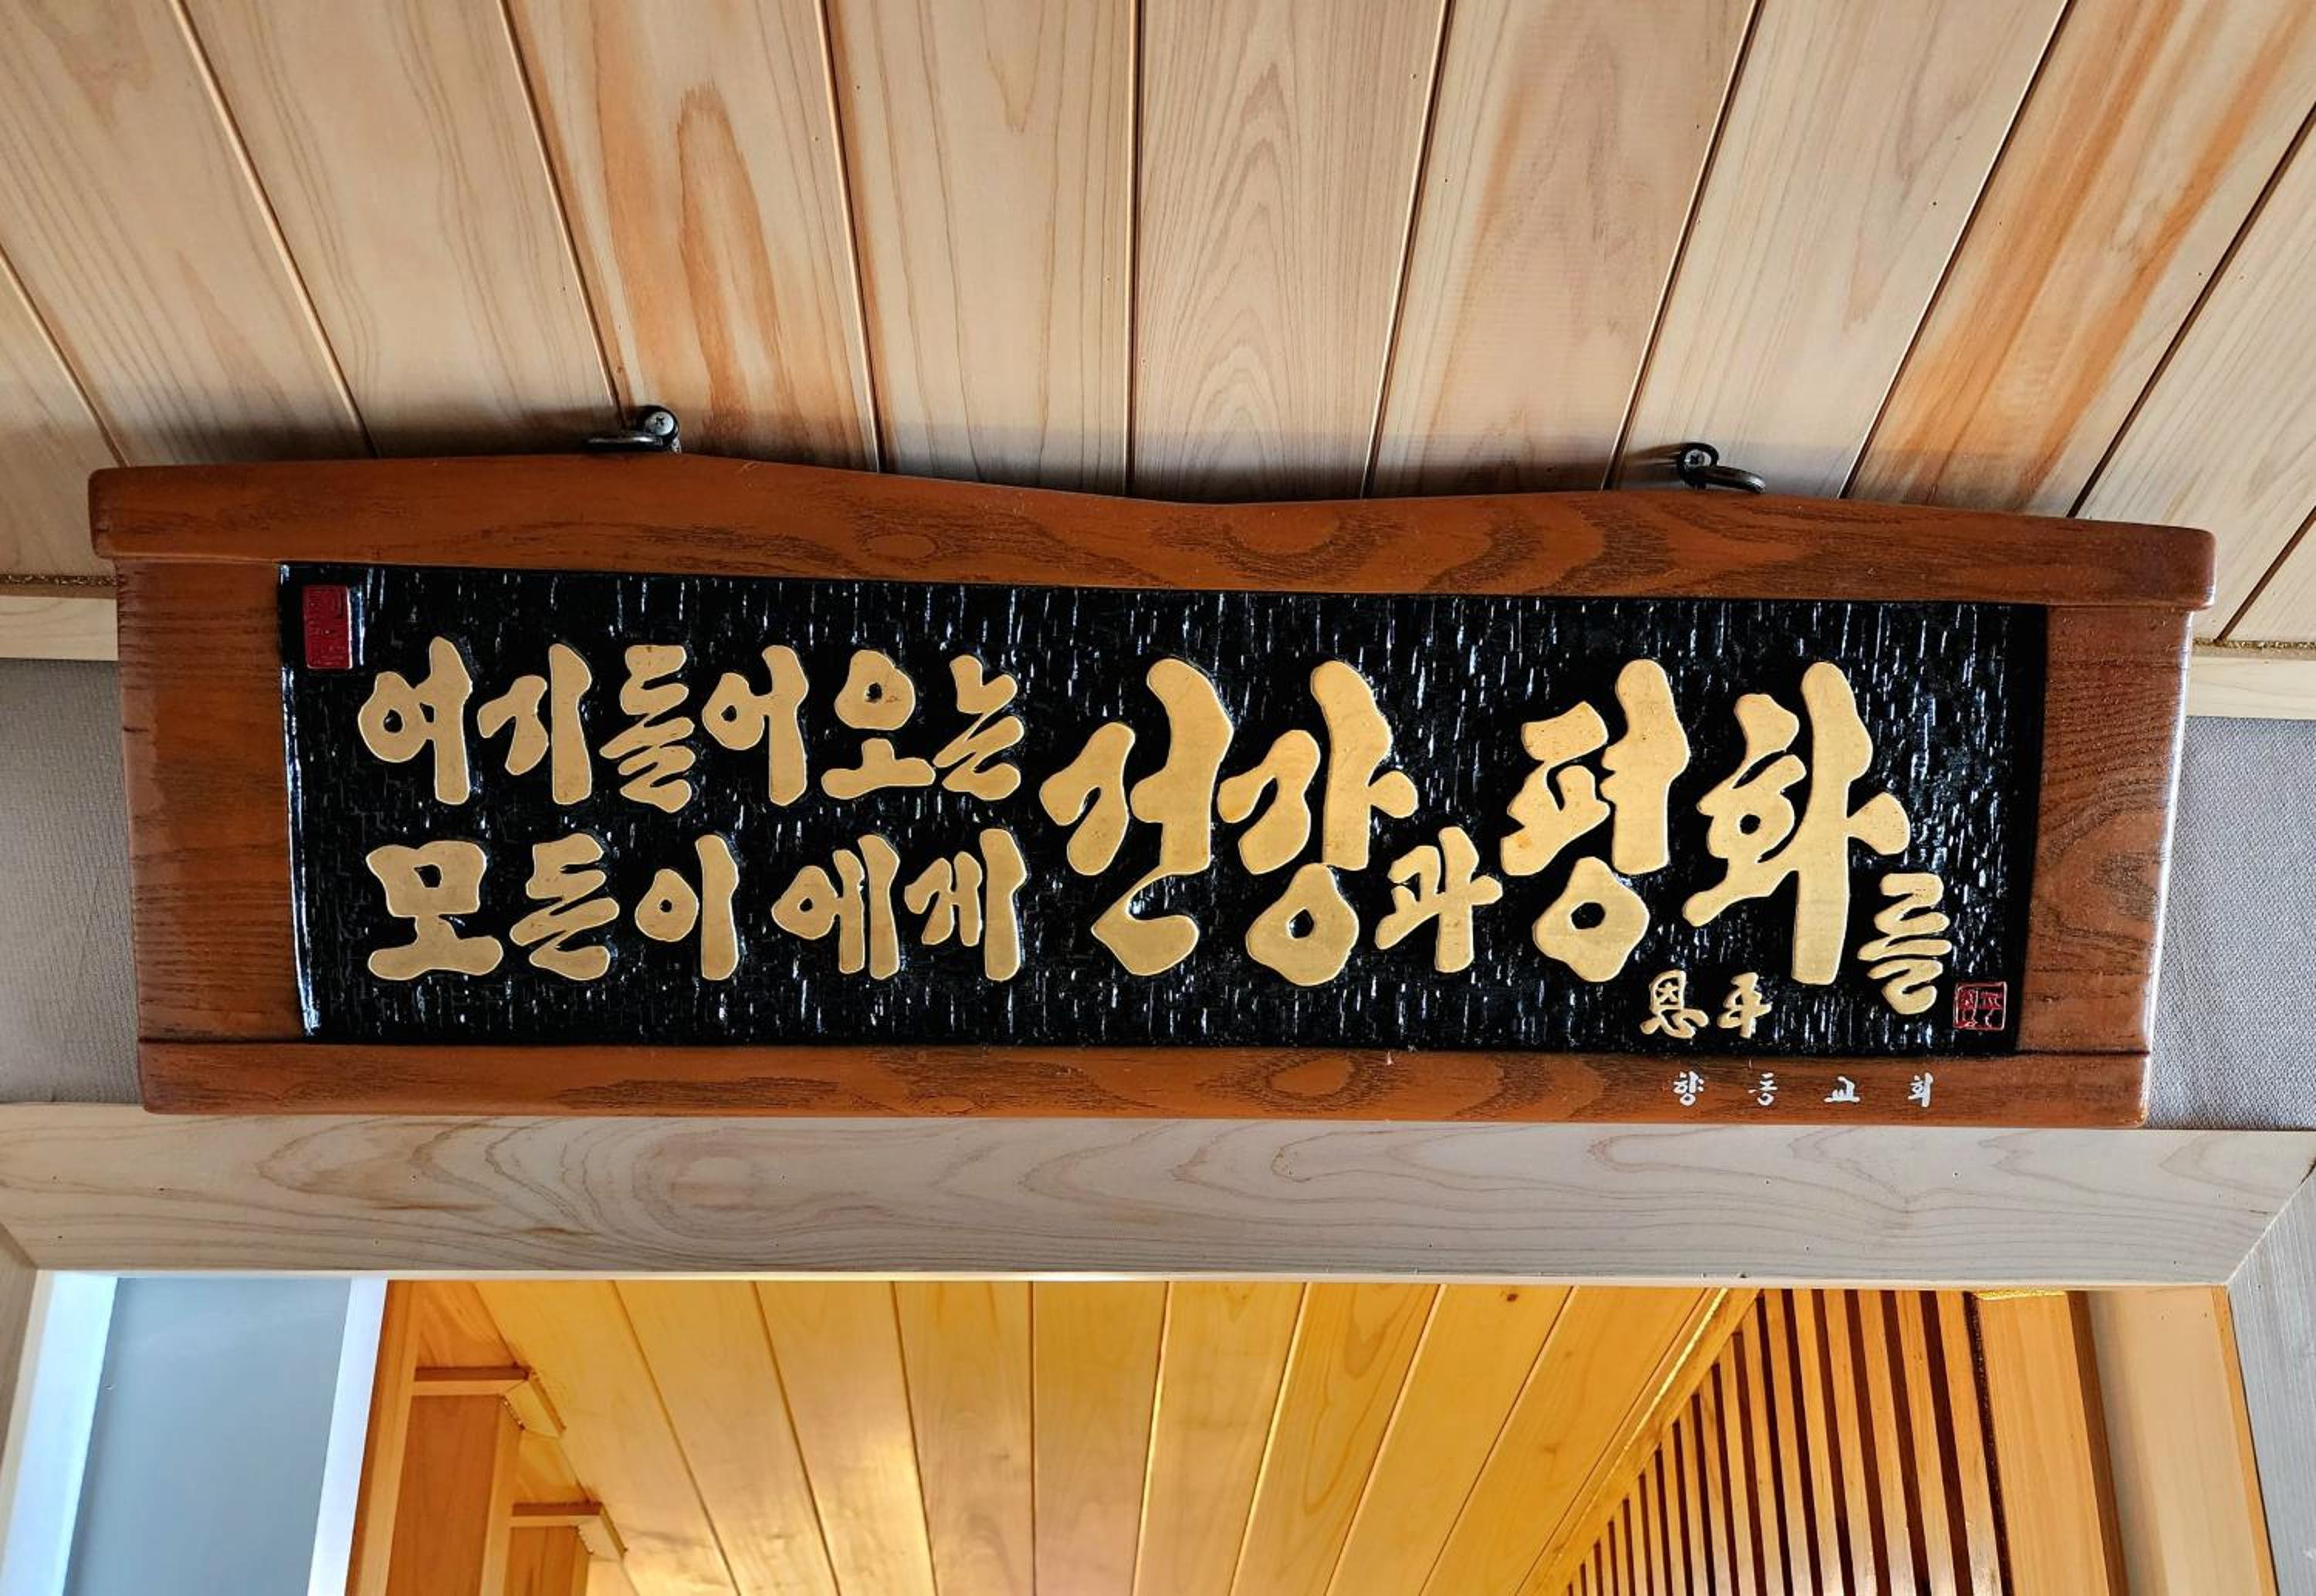 여기들어오는
모든이에게
건강과평화를
恩平
향동교회